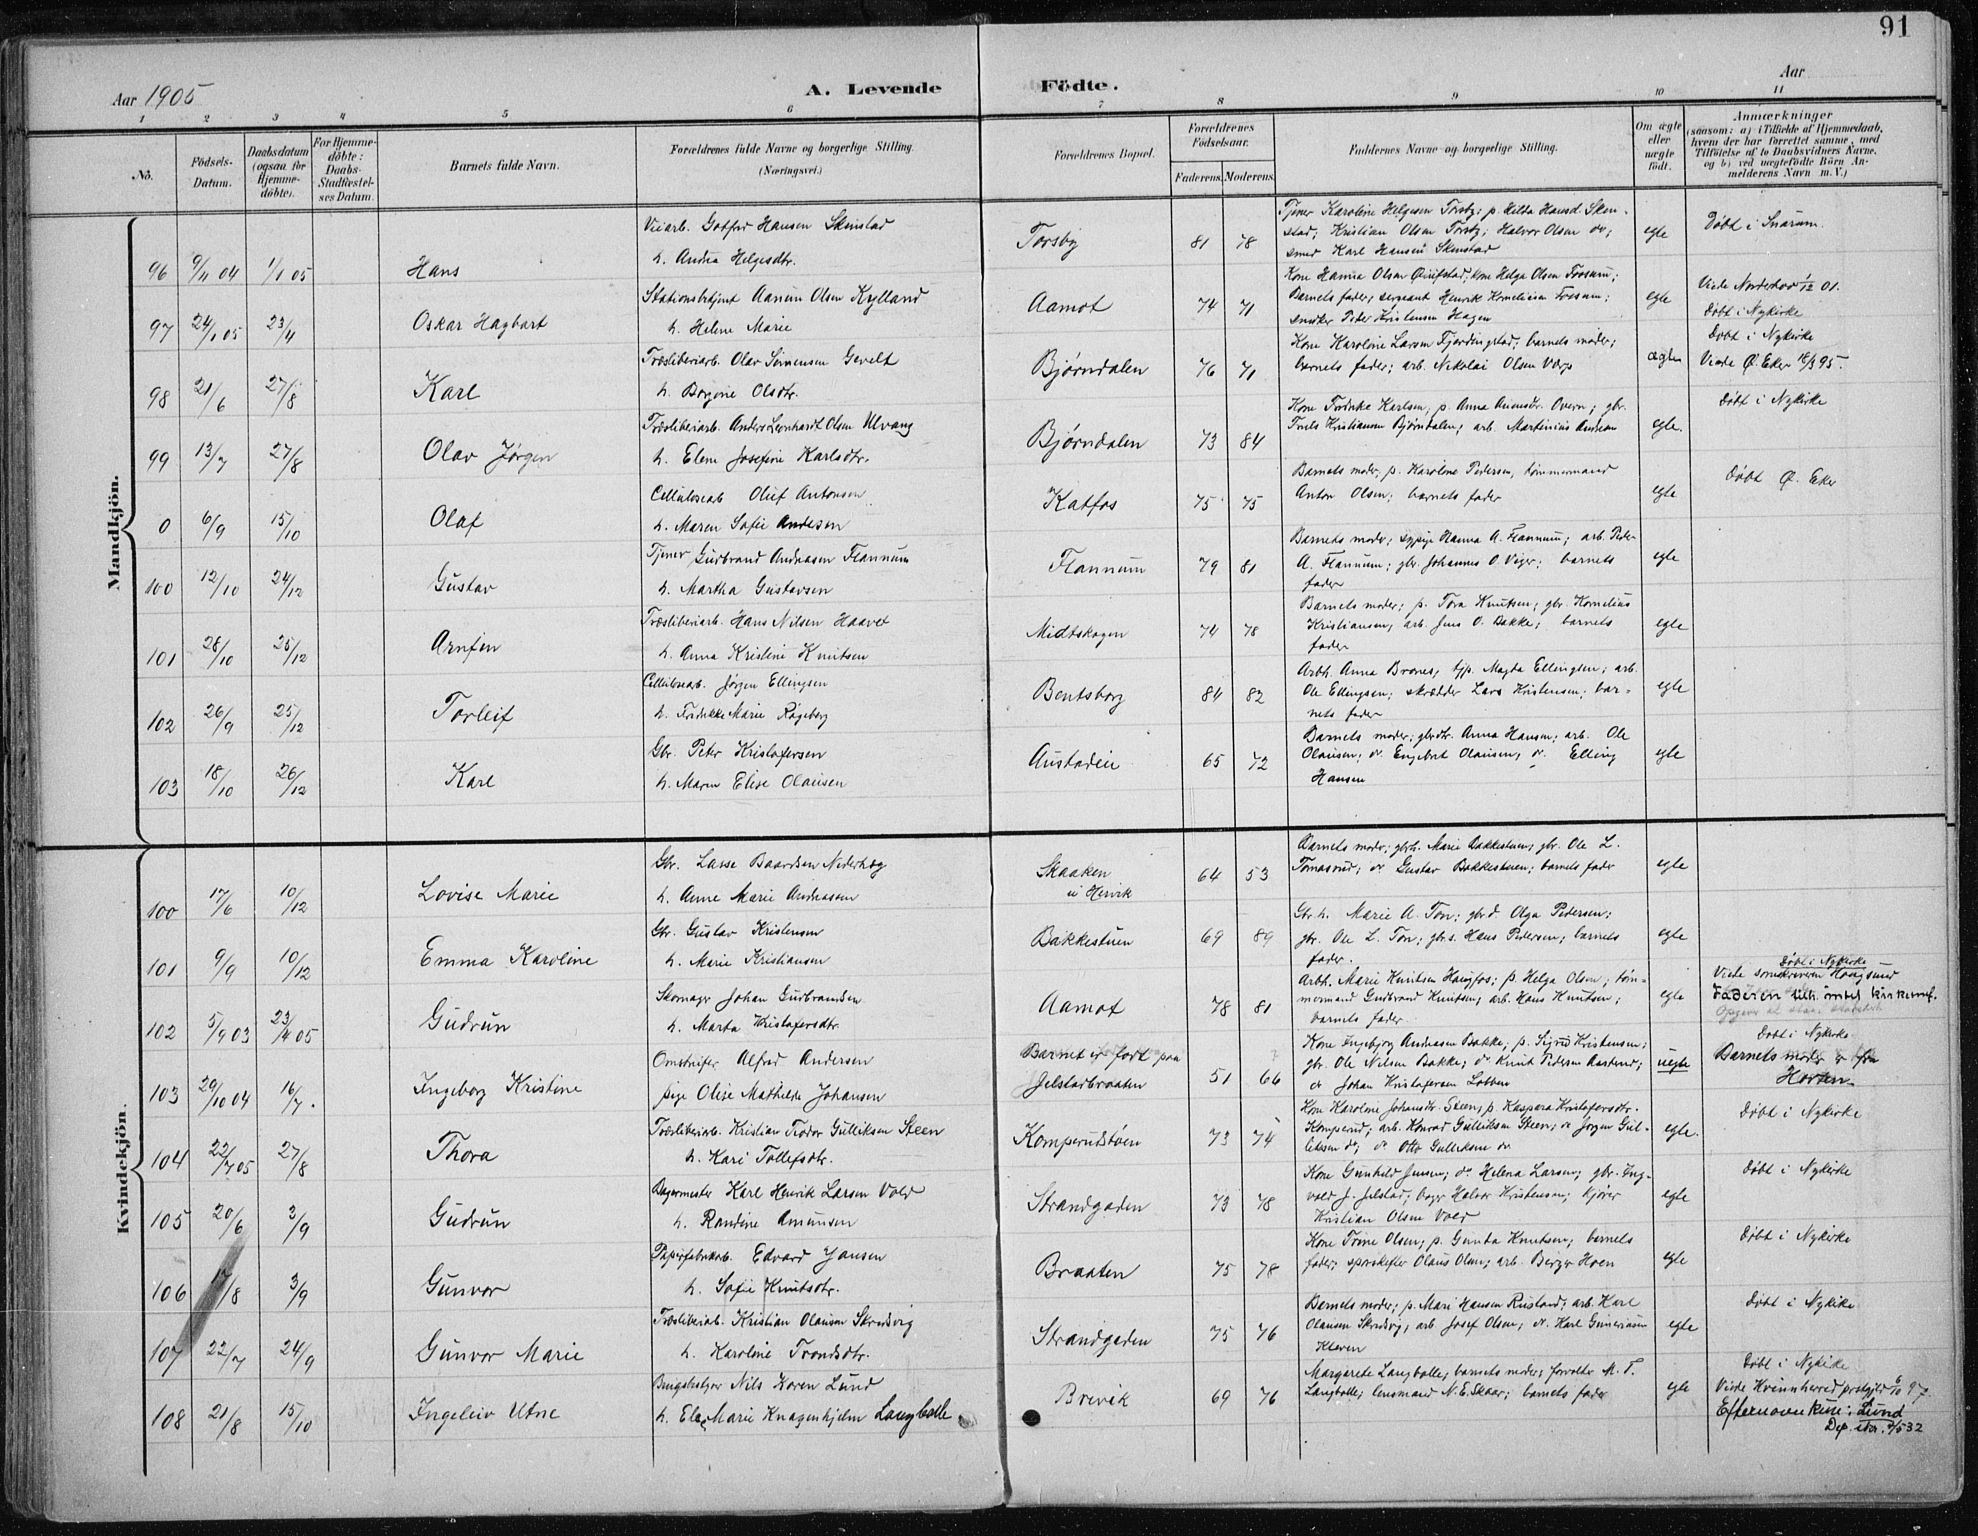 91
Aar 1905
A. Levende
Födte.
Aar
1 2 3 4 5 6 7 8 9 10 11
No.
Födsels-
Datum.
Daabsdatum
(ogsaa for
Hjemme-
döbte).
For Hjemme-
döbte:
Daabs-
Stadfæstel-
ses Datum.
Barnets fulde Navn.
Forældrenes fulde Navne og borgerlige Stilling.
(Næringsvei.)
Forældrenes Bopæl.
Forældrenes
Födselsaar.
Faderens. Moderens.
Faddernes Navne og borgerlige Stilling.
Om ægte
eller
uægte
födt.
Anmærkninger
(saasom: a) i Tilfælde af Hjemmedaab,
hvem der har forrettet samme, med
Tilföielse af to Daabsvidners Navne,
og b) ved uægtefödte Börn An-
melderens Navn m. V.)
Mandkjön.
96 9/11 04 1/1 05 Hans
Veiarb. Gotfred Hansen Skinstad
h. Andrea Helgesdtr.
Torsby 81 78
Tjener Karoline Helgesen Torsby; p. Hilda Hansd. Sken-
stad; Kristian Olsen Torsby; Halvor Olsen do;
smed Karl Hansen Skenstad
egte
Døbt i Snarum.
97 24/1 05 23/4 Oskar Hagbart
Stationsbetjent Aanun Olsen Kylland
h. Helene Marie
Aamot 74 71
Kone Hanna Olsen; kone Helga Olsen Fossum;
Barnets fader; sergeant Henrik Korneliusen Fossum;
snedker Peter Kristensen Hagen
egte
Viede Norderhov 12 01.
Døbt i Nykirke
98 21/6 27/8 Karl
Træsliberiarb. Olav Simensen Gevelt
h. Borgine Olsdtr.
Bjørndalen 76 71
Kone Karoline Larsen Fjerdingstad; barnets moder;
barnets fader; arb. Nikolai Olsen
ægte
Døbt i Nykirke
Viede Ø. Eker 95.
99 13/7 27/8 Olav Jørgen
Træsliberiarb. Anders Leonhardt Olsen Ulvang
h. Elene Josefine Karlsdtr.
Bjørndalen 73 84
Kone Fredrikke Karlsen; p. Anna Overn; gbr.
Truls Kristiansen Bjørndalen; arb. Martinius
egte.
Døbt i Nykirke
0 6/9 15/10 Olaf
Cellulosearb Oluf Antonsen
h. Maren Sofie Andersen
Katfos 75 75
Barnets moder; p. Karoline Pedersen, tømmermand
Anton Olsen; barnets fader
egte
Døbt Ø. Eker
100 12/10 24/12 Gustav
Tjener Gudbrand Andreasen Flannum
h. Martha Gustavsen
Flannum 79 81
Barnets moder; sypige Hanna A. Flannum; arb. Peder
A. Flannum; gbr. Johannes O. Viger; barnets
fader
egte
101 28/10 25/12 Arnfin
Træsliberiarb. Hans Nilsen Haavet
h. Anna Kristine Knutsen
Midtskogen 74 78
Barnets moder; p. Tora Knutsen; gbr. Kornelius
Kristiansen; arb. Jens O. Bakke; barnets
fader
egte
102 26/9 25/12 Torleif
Cellulosearb. Jørgen Ellingsen
h. Fredrikke Marie Røgeberg
Bentsborg 84 82
Arbh. Anna; tjp. Magda Ellingsen; arb.
Ole Ellingsen; skrædder Lars Kristensen; bar-
nets fader
egte
103 18/10 26/12 Karl
Gbr. Peter Kristofersen
h. Maren Elise Olausen
Austadeie 65 72
Barnets moder; gbrdtr. Anna Hansen; arb. Ole
Olausen; do Engebret Olausen; do. Elling
Hansen
egte
Kvindekjön.
100 17/6 10/12 Lovise Marie
Gbr. Lasse Baardsen Nederhag
h. Anne Marie Andreasen
Skaaken
64 53
Barnets moder; gbrh. Marie Bakkestuen; gbr. Ole L.
; do Gustav Bakkestuen; barnets fader
egte
101 9/9 10/12 Emma Karoline
Gbr. Gustav Kristensen
h. Marie Kristiansen
Bakkestuen 69 89
Gbr. h. Marie A. Ton; gbrd Olga Pedersen;
gbr. Ole L. Ton; gbr.s. Hans Pedersen; barnets
fader.
egte
102 5/9 03 23/4 05 Gudrun
Skomager Johan Gudbrandsen
h. Marta Kristofersdtr.
Aamot 78 81
Arbh. Marie Knutsen Haugfos; p. Helga Olsen; tøm-
mermand Gudbrand Knutsen; arb. Hans Knutsen;
barnets fader
egte
Døbt i Nykirke
Viede Haugsund
Faderen
103 29/10 04 16/7. Ingeborg Kristine
Omstreifer Alfred Andersen
pige Olise Mathilde Johansen
Barnet er født paa
Jelstadbraaten 51 66
Kone Ingeborg Andreasen Bakke; p. Sigrid Kristensen;
gbr. Ole Nilsen Bakke; do Knut Pedersen; 
do Johan Kristofersen Lobben
uegte
Døbt i Nykirke
Barnets moder er fra
Horten
104 22/7 05 27/8 Thora
Træsliberiarb. Kristian Teodor Gulliksen Steen
h. Kari Tollefsdtr.
Komperudstøen 73 74
Kone Karoline Johansdtr. Steen; p. Kaspara Kristofersdtr.
Komperud; arb. Konrad Gulliksen Steen; do Jørgen Gul-
liksen do; do Otto Gulliksen do
egte.
Døbt i Nykirke
105 20/6 3/9 Gudrun
Bagermester Karl Henrik Larsen Vold
h. Randine Amundsen
Strandgaden 73 78
Kone Gunhild Jensen; do Helena Larsen; gbr. Ing-
vald J. Jelstad; bager Halvor Kristensen; kjører
Kristian Olsen Vold
egte
Døbt i Nykirke
106 17/8 3/9 Gunvor
Papirfabrikarb. Edvard Jansen
h. Sofie Knutsdtr.
Braaten 75 78
Kone Trine Olsen; p. Gunda Knutsen; barnets
fader; sporskifter Olaus Olsen; arb. Birger Hoen
egte
Døbt i Nykirke
107 22/7 24/9 Gunvor Marie
Træsliberiarb. Kristian Olausen Skredsvig
h. Karoline Trondsdtr.
Strandgaden 75 76
Barnets moder; p. Mari Hansen Rustand; arb. Karl
Olausen Skredsvig; arb Josef Olsen; do. Karl Guneriusen
Kleven
egte
Døbt i Nykirke
108 21/8 15/10 Ingeleiv Utne
Brugsbestyrer Nils Koren Lund
h. Ela Marie Knagenhjelm Langballe
Brevik 69 76
Margarete Langballe; barnets moder; forvalter M. T.
Langballe; lensmand N. E. Skaar; barnets fader
egte
Døbt i Nykirke
Viede Kvinnherred prestegjeld 97.
Efternavn : Lund
Dep. skr. 2/5 32